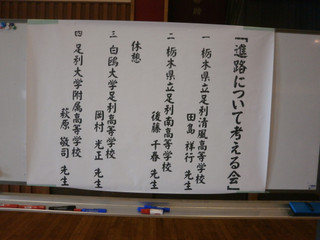 「進路について考える会」
一 栃木県立足利清風高等学校
田島 祥行 先生
二 栃木県立足利南高等学校
後藤 千春 先生
休憩
三 白鴎大学足利高等学校
岡村 光正 先生
四 足利大学附属高等学校
萩原 敬司 先生